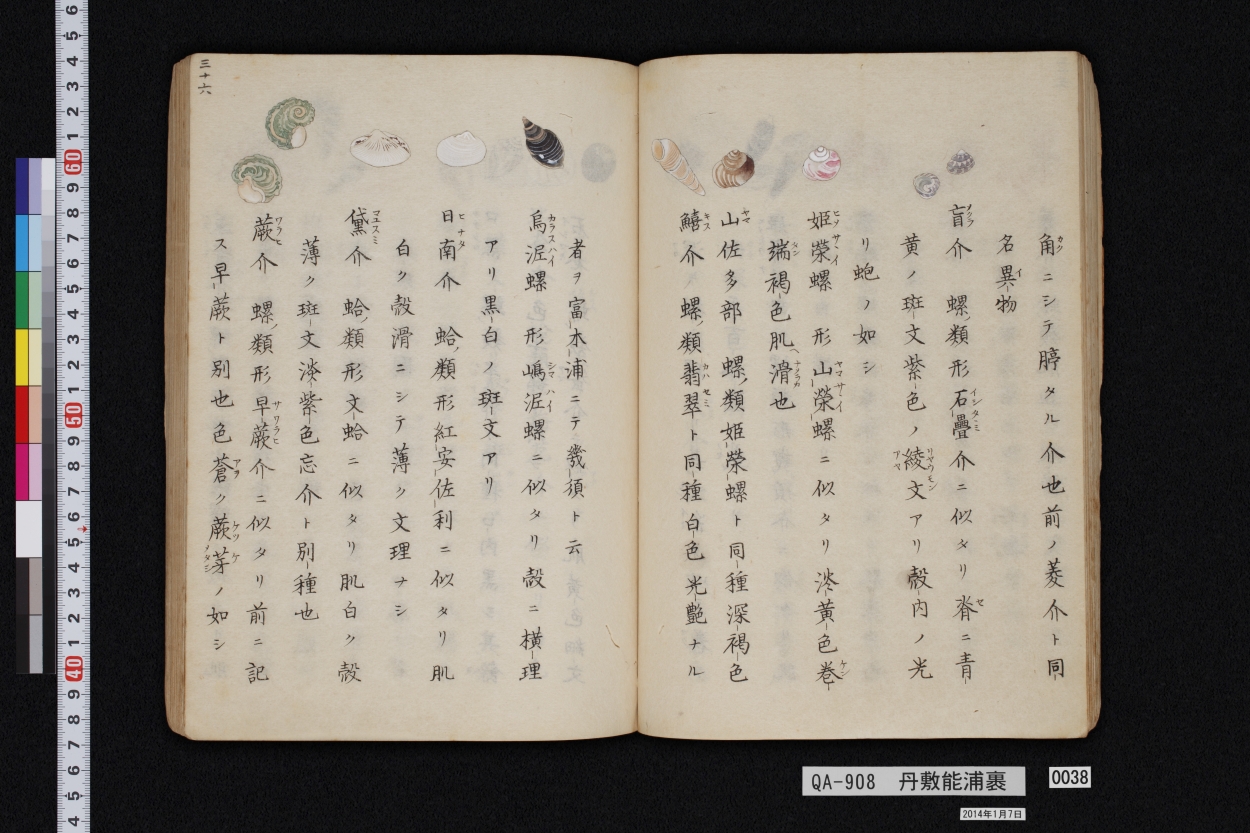 角ニシテ脝タル介也前ノ菱介ト同
名異物
盲介　螺ノ類形石疊介ニ似タリ脊ニ青
黄ノ斑文紫色ノ綾文アリ殻内ノ光
リ蚫ノ如シ
姫榮螺　形山榮螺ニ似タリ淡黄色巻
端褐色肌滑也
山佐多部　螺ノ類姫榮螺ト同種深褐色
鱚介　螺ノ類翡翠ト同種白色光艶ナル
者ヲ富木浦ニテ幾須ト云
烏泥螺　形嶋泥螺ニ似タリ殻ニ横理
アリ黒白ノ斑文アリ
日南介　蛤ノ類形紅安佐利ニ似タリ肌
白ク殻滑ニシテ薄ク文理ナシ
黛介　蛤ノ類形文蛤ニ似タリ肌白ク殻
薄ク斑文淡紫色忘介ト別種也
蕨介　螺ノ類形早蕨介ニ似タリ前ニ記
ス早蕨ト別也色蒼ク蕨芽ノ如シ
三十六
QA-908　丹敷能浦裹
0038
2014年1月7日